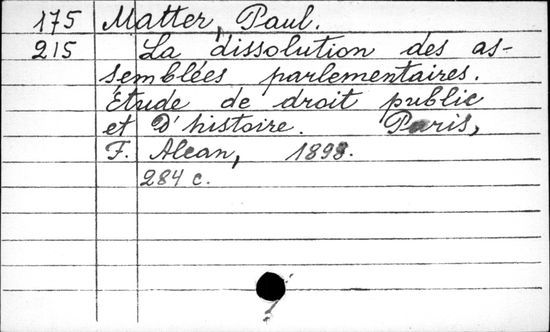 175 Matter, Paul.
215 La dissolution des as-
semblées parlementaires.
Étude de droit public
et d'histoire. Paris,
F. Alcan, 1898.
284 c.